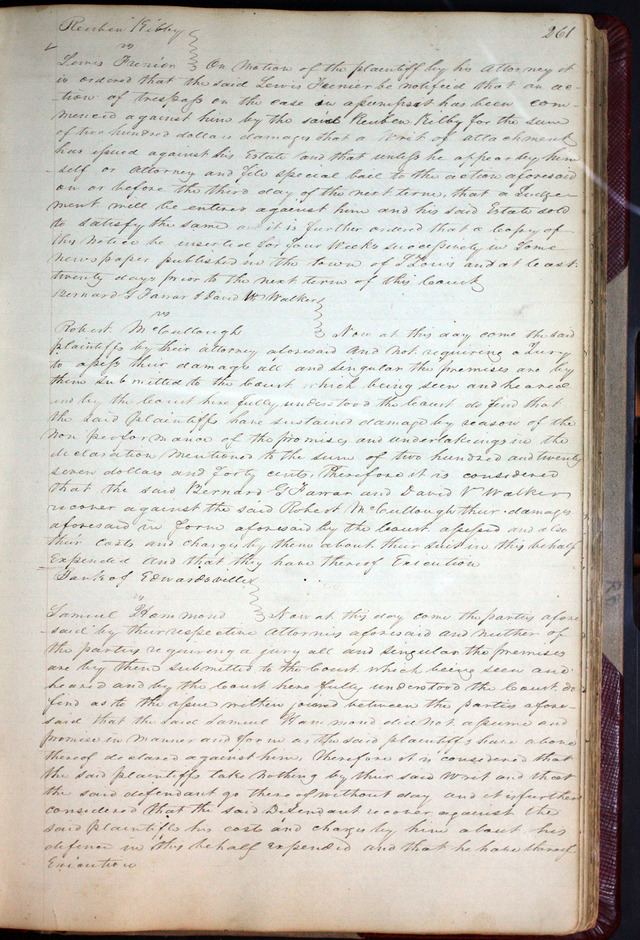 261
Reuben Kibby
vs
Lewis Frenier } On Motion of the plaintiff by his Attorney it
is ordered that the said Lewis Frenier be notified that an ac-
tion of trespass on the case in assumpsit has been com
menced against him by the said Reuben Kibby for the sum
of two hundred dollars damages that a writ of attachment
has issued against his Estate and that unless he appear by him
self or attorney and file special bail to the action aforesaid
on or before the third day of the next term, that a Judge-
ment will be entered against him and his said Estate sold
to satisfy the same and it is further ordered that a Copy of
this Notice be inserted for four Weeks successively in Some
newspaper published in the town of St Louis and at least
twenty days prior to the next term of this Court
Bernard G Farrar & David V Walker
vs
Robert McCullough } Now at this day come the said
plaintiffs by their attorney aforesaid and not requiring a Jury
to assess their damages all and singular the premises are by
them submitted to the Court which being seen and heared
and by the Court here fully understood the Court do find that
the said Plaintiffs have sustained damage by reason of the
non performance of the promises and undertakings in the
declaration mentioned to the sum of two hundred and twenty
seven dollars and forty cents, Therefore it is considered
that the said Bernard G Farrar and David V Walker
recover against the said Robert McCullough their damages
aforesaid in form aforesaid by the Court assessed and also
their Costs and charges by them about their Suit in this behalf
Expended and that they have thereof Execution
Bank of Edwardsville
vs
Samuel Hammond } Now at this day come the parties afore
said by their respective Attornies aforesaid and neither of
the parties requiring a jury all and singular the premises
are by them submitted to the Court which being seen and
heared and by the Court here fully understood the Court do
find as to the issue within joined between the parties afore-
said that the said Samuel Hammond did not assume and
promise in manner and form as the said plaintiffs have above
thereof declared against him, Therefore it is considered that
the said plaintiffs take nothing by their said Writ and that
the said defendant go thereof without day and it is further
considered that the said Defendant recover against the
said plaintiffs his costs and charges by him about his
defence in this behalf expended and that he have thereof
Execution